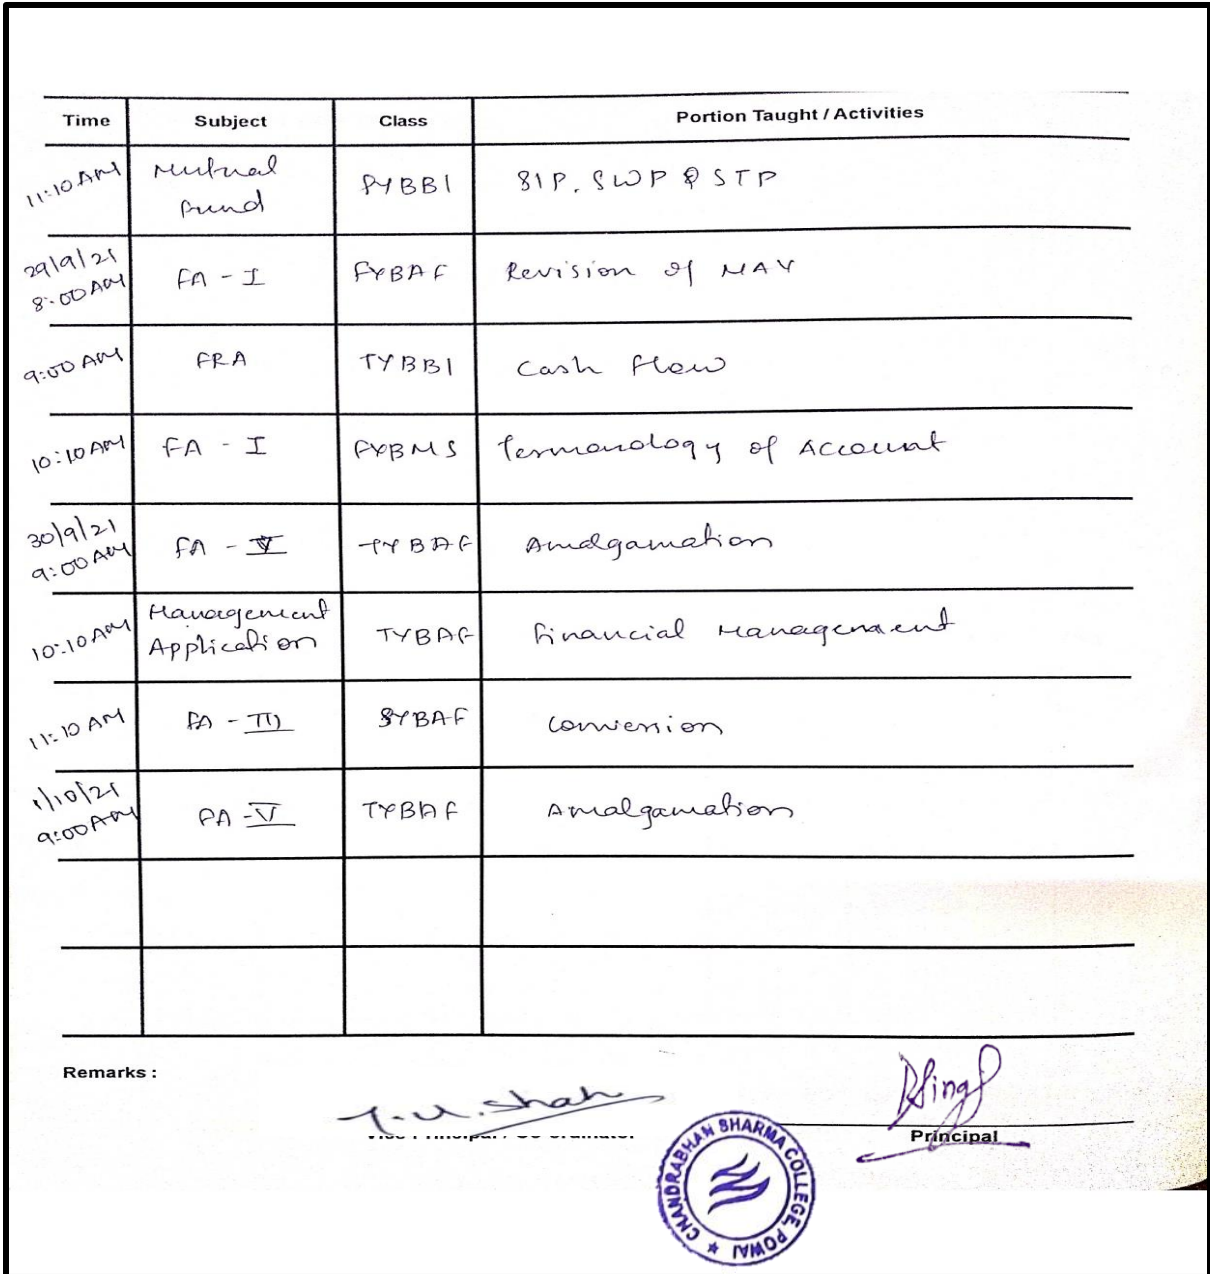 Time Subject Class Portion Taught / Activities
11:10 AM Mutual Fund FYBBI SIP, SWP & STP
29/9/21 8:00 AM FA - I FYBAF Revision of
9:00 AM FRA TYBBI Cash Flow
10:10 AM FA - I FYBMS Termonology of Account
30/9/21 9:00 AM FA - V TYBAF Amalgamation
10:10 AM Management Application TYBAF Financial Management
11:10 AM FA - III SYBAF Conversion
1/10/21 9:00 AM FA - V TYBAF Amalgamation
Remarks :
T.U. Shah
Vice Principal / Co-ordinator
Principal
CHANDRABHAN SHARMA COLLEGE, POWAI